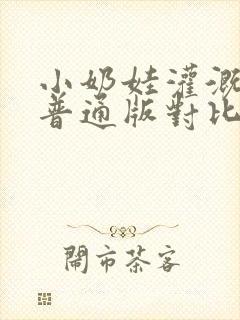 小奶娃灌溉
普通版對比
鬧市茶客